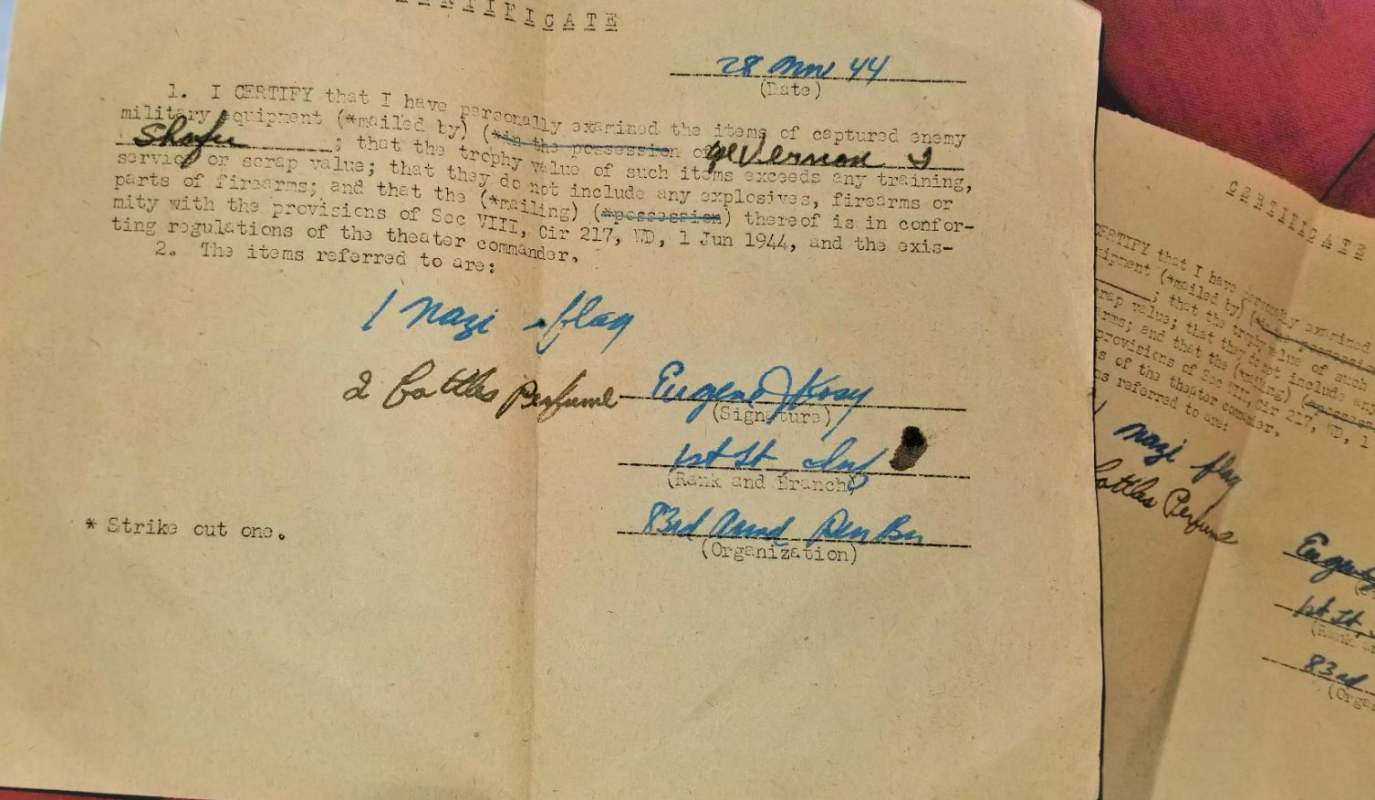 CERTIFICATE
28 Nov 44
(Date)
1. I CERTIFY that I have personally examined the items of captured enemy
military equipment (*mailed by) (*in the possession of Vernon J
Shafer ; that the trophy value of such items exceeds any training,
service or scrap value; that they do not include any explosives, firearms or
parts of firearms; and that the (*mailing) (*possession) thereof is in confor-
mity with the provisions of Sec VIII, Cir 217, WD, 1 Jun 1944, and the exis-
ting regulations of the theater commander.
2. The items referred to are:
1 Nazi flag
2 bottles Perfume
Eugene J Kosy
(Signature)
1st Lt Inf
(Rank and Branch)
83rd Armd Rcn Bn
(Organization)
* Strike out one.
CERTIFICATE
CERTIFY that I have personally examined
equipment (*mailed by) (*in the possession
; that the trophy value of such
scrap value; that they do not include any
arms; and that the (*mailing) (*possession
provisions of Sec VIII, Cir 217, WD, 1
s of the theater commander.
ms referred to are:
1 Nazi flag
bottles Perfume
1st Lt
(Rank an
83rd
(Orga